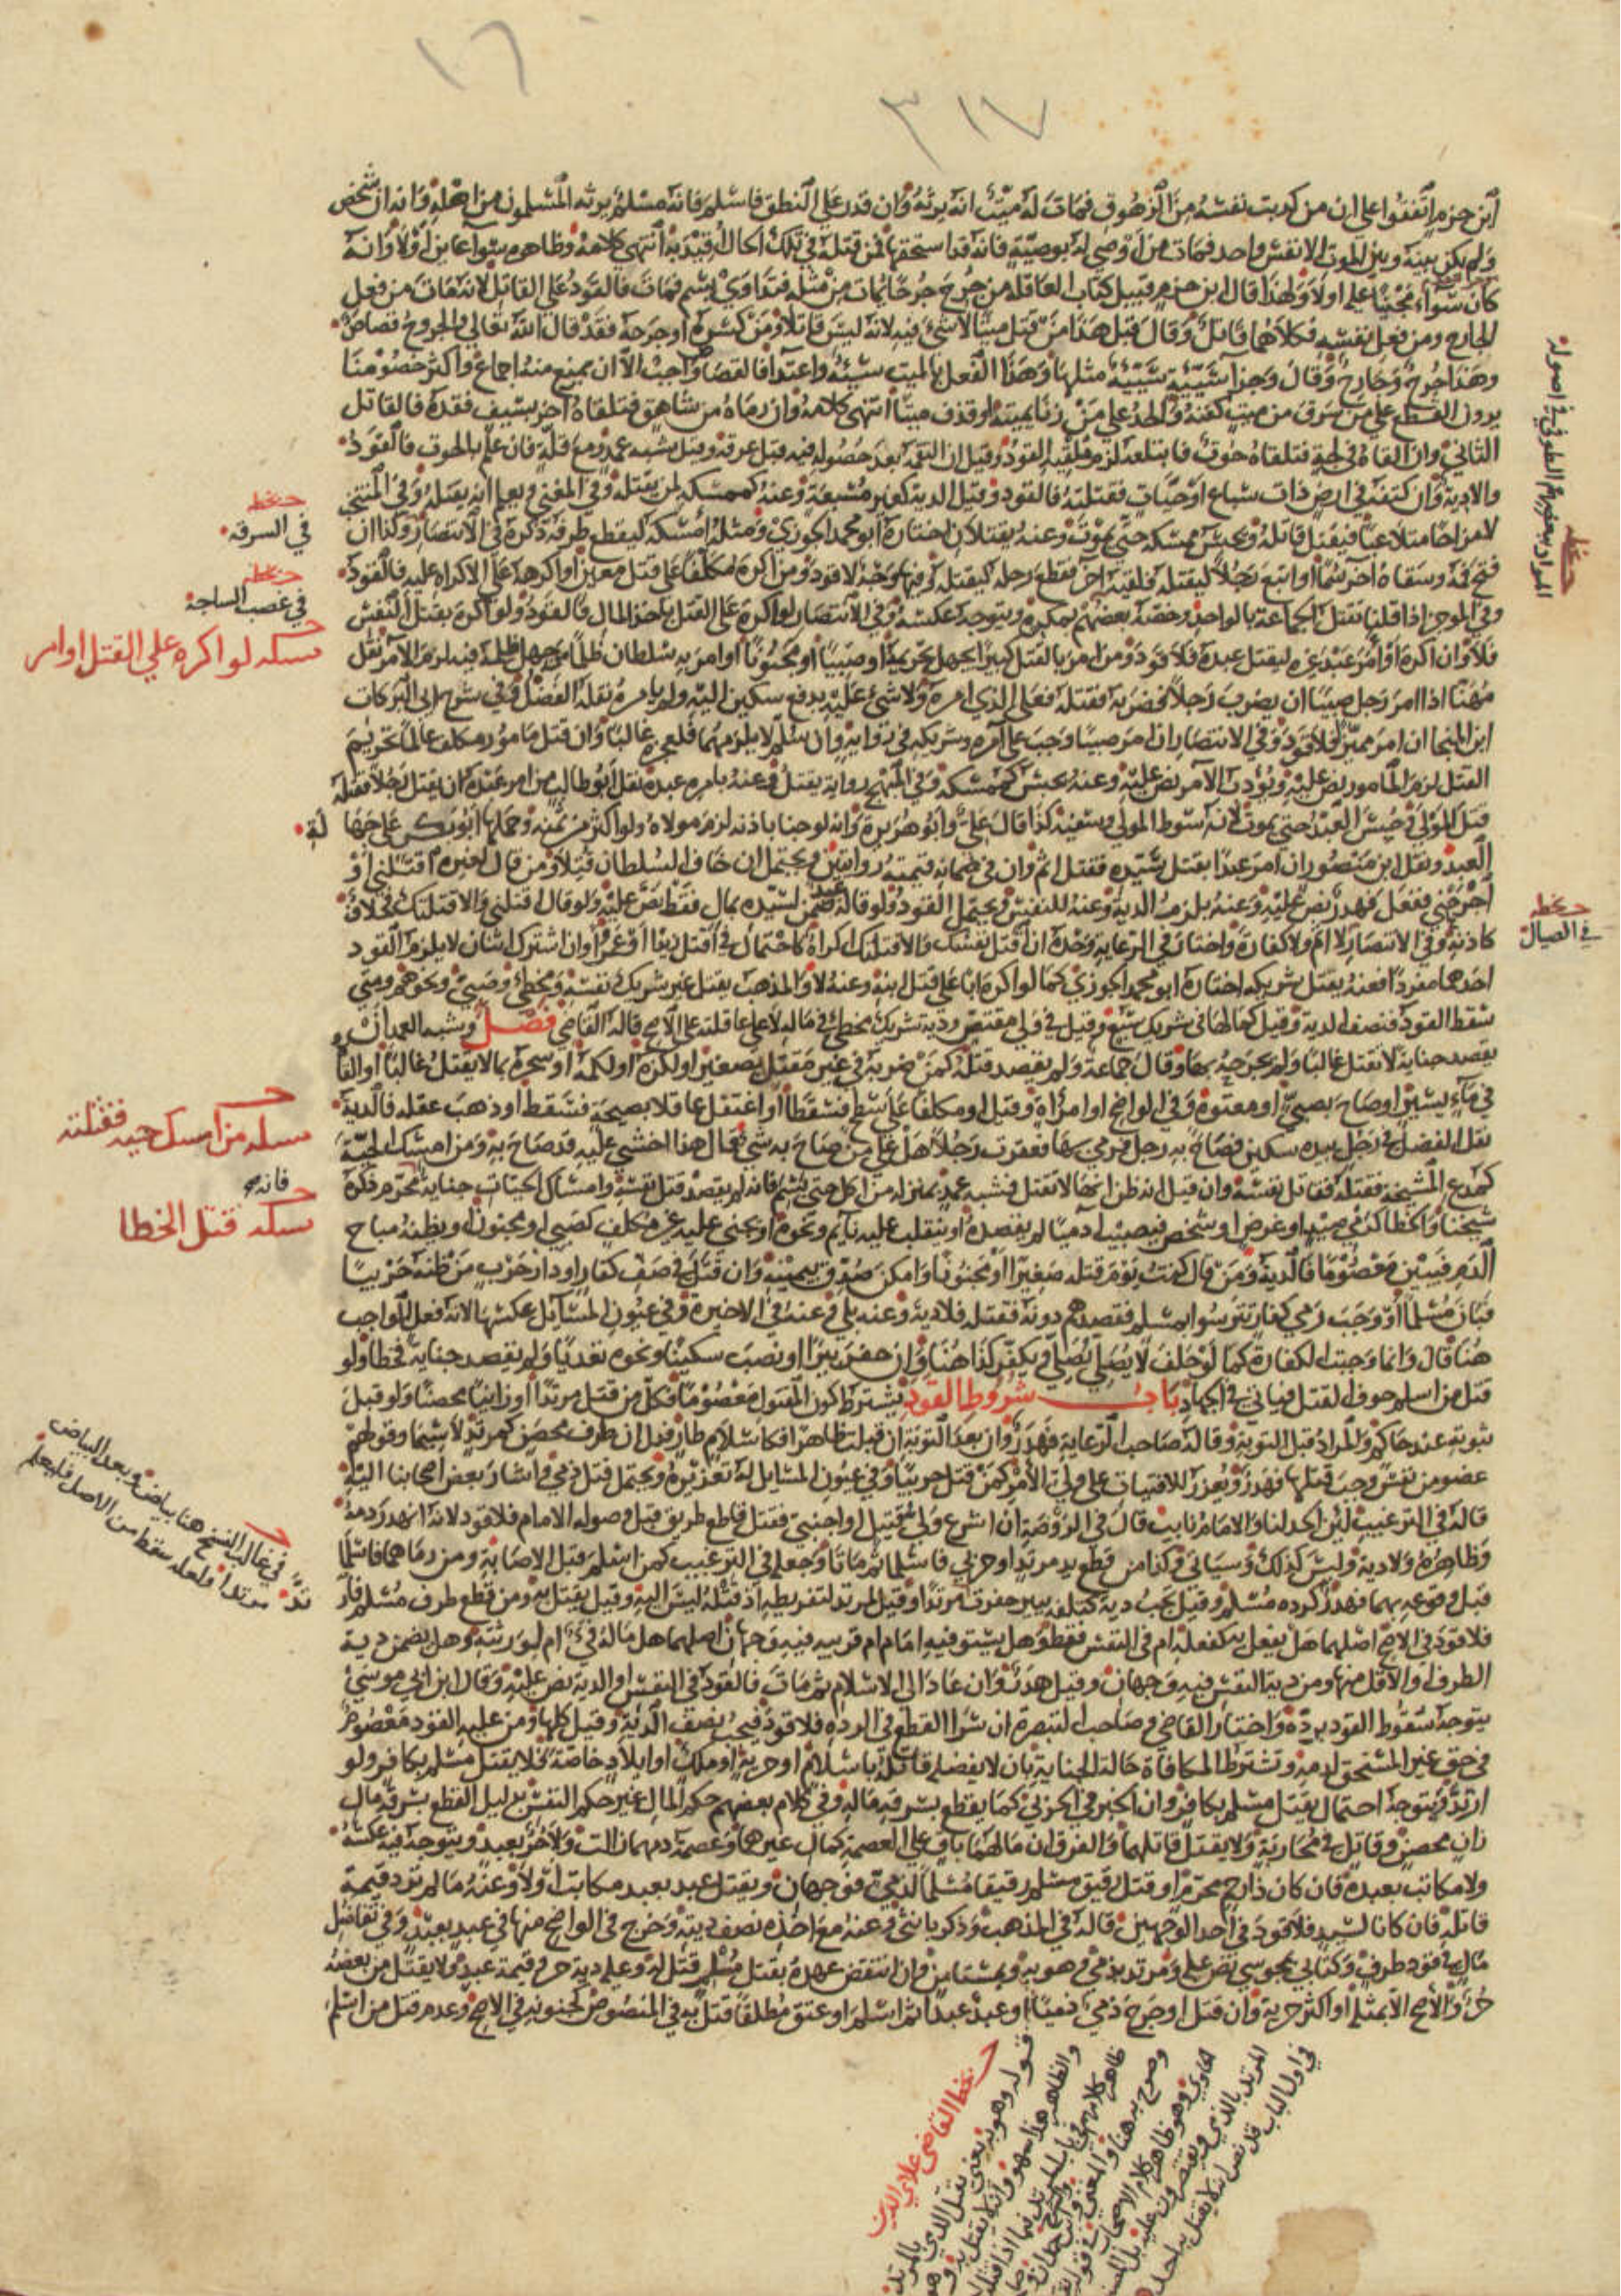 ١٦
٣١٧
ابن حزم اتفقوا على ان من قربت نفسه من الزهوق فمات له ميت انه يرثه وان قدر على النطق فاسلم فانه مسلم يرثه المسلمون من اهله وانه ان شخص
ولم يكن بينه وبين الموت الا نفس واحد فمات من اوصى له بوصية فانه قد استحقها فمن قتله في تلك الحال اقيد به انتهى كلامه وظاهره سوا عاين اولا وانه
كان سواء مجنيا عليه اولا ولهذا قال ابن حزم قبيل كتاب العاقلة من جرح جرحا يمات من مثله فتداوى بسم فمات فالقود على القاتل لانه مات من فعل
الجارح ومن فعل نفسه فكلاهما قاتل وقال قبل هذا من قتل ميتا لا شيء فيه لانه ليس قاتلا ومن كسره او جرحه فقد قال الله تعالى والجروح قصاص
وهذا جرح وجارح وقال وجزاء سيئة سيئة مثلها وهذا الفعل بالميت سيئة واعتدا فالقصاص واجب الا ان يمنع منه اجماع واكثر خصومنا
يرون القطع على من سرق من ميت كفنه والحد على من زنا بميتة او قذف ميتا انتهى كلامه وان رماه من شاهق فتلقاه اخر بسيف فقده فالقاتل
الثاني وان القاه في لجة فتلقاه حوت فابتلعه لزم ملقيه القود وقيل ان التقمه بعد حصوله فيه قبل غرقه وقيل شبه عمد ومع قلة فان علم بالحوت فالقود
والا دية وان كتفه في ارض ذات سباع او حيات فقتلته فالقود وقيل الدية كغير مسبعة وعنه كممسكه لمن يقتله وفي المغني يعلم انه يقتله وفي المنتخب
لا مزاحا متلاعبا فيقتل قاتله ويحبس ممسكه حتى يموت وعنه يقتلان اختاره ابو محمد الجوزي ومثله امسكه ليقطع طرفه ذكره في الانتصار وكذا ان
فتح فمه وسقاه اخر سما او اتبع رجلا ليقتله فلقيه اخر فقطع رجله ليقتله وفيها وجه لا قود ومن اكره مكلفا على قتل معين او اكره على الاكراه عليه فالقود
وفي الموجز اذا قلنا تقتل الجماعة بالواحد وخصه بعضهم بمكره ويتوجه عكسه وفي الانتصار لو اكره على القتل باخذ المال فالقود ولو اكره بقتل النفس
فلا وان اكره او امر عبد غيره ليقتل عبده فلا قود ومن امر بالقتل كبيرا يجهل تحريمه او صبيا او مجنونا او امر به سلطان ظلما من جهل ظلمه فيه لزم الآمر نقل
مهنا اذا امر رجل صبيا ان يضرب رجلا فضربه فقتله فعلى الذي امره ولا شيء عليه بدفع سكين اليه ولم يامره نقله الفضل وفي شرح ابي البركات
ابن المنجا ان امر مميزا فلا قود وفي الانتصار ان امر صبيا وجب على آمره وشريكه في رواية وان سلم لا يلزمهما فلعجزه غالبا وان قتل مامور مكلف عالما تحريم
القتل لزم المامور نص عليه ويؤدب الآمر نص عليه وعنه يحبس كممسكه وفي المبهج رواية يقتل وعنه بامره عبده نقل ابو طالب من امر عبده ان يقتل رجلا فقتله
قتل المولى وحبس العبد حتى يموت لانه سوط المولى وسيفه كذا قال علي وابو هريرة وانه لو جنا باذنه لزم مولاه ولو اكثر من ثمنه وحملها ابو بكر على جهالة
العبد ونقل ابن منصور ان امر عبدا بقتل سيده فقتل اثم وان في ضمانه قيمته روايتين ويحتمل ان خاف السلطان قتلا ومن قال لغيره اقتلني او
اجرحني ففعل فهدر نص عليه وعنه يلزمه الدية وعنه للنفس ويحتمل القود ولو قاله عبد ضمن لسيده بمال فقط نص عليه ولو قال اقتلني والا قتلتك فخلاف
كاذنه وفي الانتصار لا اثم ولا كفارة واختار في الرعاية وحده ان اقتل نفسك والا قتلتك اكراه كاحتمال في اقتل زيدا او عمرا وان اشترك اثنان لا يلزم القود
احدهما مفردا فعنه يقتل شريكه اختاره ابو محمد الجوزي كما لو اكره ابا على قتل ابنه وعنه لا والمذهب يقتل غير شريك نفسه ومخطئ وصبي ونحوهم ومتى
سقط القود فنصف الدية وقيل كمالها في شريك سبع وقيل في ولي مقتص ودية شريك مخطئ في ماله لا على عاقلته على الاصح قاله القاضي فصل وشبه العمد ان
يقصد جناية لا تقتل غالبا ولم يجرحه بها وقال جماعة ولم يقصد قتله كمن ضربه في غير مقتل بصغير او لكزه او لكمه او سحره بما لا يقتل غالبا او القا
في ماء يسير او صاح بصبي او معتوه وفي الواضح او امراة وقيل او مكلفا على سطح فسقطا او اغتفل عاقلا بصيحة فسقط او ذهب عقله فالدية
نقل الفضل في رجل بيده سكين فصاح به رجل فرمى بها فعقرت رجلا هل على من صاح به شيء قال هذا اخشى عليه قد صاح به ومن امسك الحية
كمدعي المشيخة فقتلته فقاتل نفسه وان قيل انه ظن انها لا تقتل فشبه عمد بمنزلة من اكل حتى بشم فانه لم يقصد قتل نفسه وامساك الحيات جناية محرم ذكره
شيخنا والخطا كرمي صيد او غرض او شخص فيصيب ادميا لم يقصده او ينقلب عليه نائم ونحوه او يجني عليه غير مكلف كصبي او مجنون او يظنه مباح
الدم فيبين معصوما فالدية ومن قال كنت يوم قتله صغيرا او مجنونا وامكن صدق بيمينه وان قتل في صف كفار او دار حرب من ظنه حربيا
فبان مسلما او وجب رمي كفار تترسوا بمسلم فقصدهم دونه فقتله فلا دية وعنه بلى وعنه في الاخيرة وفي عيون المسائل عكسها لانه فعل الواجب
هنا قال وانما وجبت الكفارة كما لو حلف لا يصلي يصلي ويكفر كذا هنا وان حفر بئرا او نصب سكينا ونحوه تعديا ولم يقصد جناية فخطا ولو
قتل من اسلم خوف القتل فياتي في الجهاد باب شروط القود يشترط كون المقتول معصوما فكل من قتل مرتدا او زانيا محصنا ولو قبل
ثبوته عند حاكم والمراد قبل التوبة وقاله صاحب الرعاية فهدر وان بعد التوبة ان قبلت ظاهرا فكاسلام طار فدل ان طرف محصن كمرتد لا سيما وقولهم
عضو من نفس وجب قتلها فهدر ويعزر للافتيات على ولي الامر كمن قتل حربيا وفي عيون المسائل له تعزيره ويحتمل قتل ذمي واشار بعض اصحابنا اليه
قاله في الترغيب لئن الحد لنا والامام نايب قال في الروضة ان اسرع ولي قتيل او اجنبي فقتل قاطع طريق قبل وصوله الامام فلا قود لانه انهدر دمه
وظاهره ولا دية وليس كذلك وسياتي وكذا من قطع يد مرتد او حربي فاسلما ثم ماتا وجعله في الترغيب كمن اسلم قبل الاصابة ومن رماهما فاسلما
قبل وقوعه بهما فهدر كرده مسلم وقيل يجب دية كتلفه ببير حفرت مرتدا وقيل المرتد لتفريطه اذ قتله ليس اليه وقيل يقتل به ومن قطع طرف مسلم فار
فلا قود في الاصح اصلهما هل يفعل به كفعله ام في النفس فقط وهل يستوفيه امام ام قريبه فيه وجهان اصلهما هل ماله فيء ام لورثته وهل يضمن دية
الطرف او الاقل منها ومن دية النفس فيه وجهان وقيل هدر وان عاد الى الاسلام ثم مات فالقود في النفس او الدية نص عليه وقال ابن ابي موسى
يتوجه سقوط القود بردة واختار القاضي وصاحب التبصرة ان سرا القطع في الردة فلا قود فيجب نصف الدية وقيل كلها ومن عليه القود معصوم
في حق غير المستحق لدمه وتشترط المكافاة حالة الجناية بان لا يفضله قاتله باسلام او حرية او ملك او ايلاد خاصة فلا يقتل مسلم بكافر ولو
ارتد ويتوجه احتمال يقتل مسلم بكافر وان الخبر في الحربي كما يقطع بسرقة ماله وفي كلام بعضهم حكم المال غير حكم النفس بدليل القطع بسرقة مال
زان محصن وقاتل في محاربة ولا يقتل قاتلهما والفرق ان مالهما باق على العصمة كمال غيرهما وعصمة دمهما زالت ولا حر بعبد ويتوجه فيه عكسه
ولا مكاتب بعبده فان كان ذا رحم محرم او قتل رقيق مسلم رقيقا مسلما لذمي فوجهان ويقتل عبد بعبد مكاتبا اولا وعنه ما لم تزد قيمة
قاتله فان كانا لسيد فلا قود في احد الوجهين قاله في المذهب وذكر بانثى وعنه مع اخذه نصف ديته وخرج في الواضح منها في عبد بعبد وفي تفاضل
مال في قود طرف وكتابي بمجوسي نص عليه ومرتد بذمي وهو به وبمستامن وان انتقض عهده بقتل مسلم قتل له وعليه دية حر وقيمة عبد ولا يقتل من بعضه
حر والاصح الا بمثله او اكثر حرية وان قتل او جرح ذمي ذميا او عبد عبدا ثم اسلم او عتق مطلقا قتل به في المنصوص كجنونه في الاصح وعدم قتل من اسلم
المراد ببعضهم الطوفي في اصوله
بخطه
في السرقة
بخطه
في غصب الساجة
مسئلة لو اكره على القتل او امر
بخطه
في الصيال
مسئلة من امسك حية فقتلته
فانه
مسئلة قتل الخطا
في غالب النسخ هنا بياض وبعد البياض
مرتدا ولعله سقط من الاصل فليعلم
بخط القاضي علاي الدين